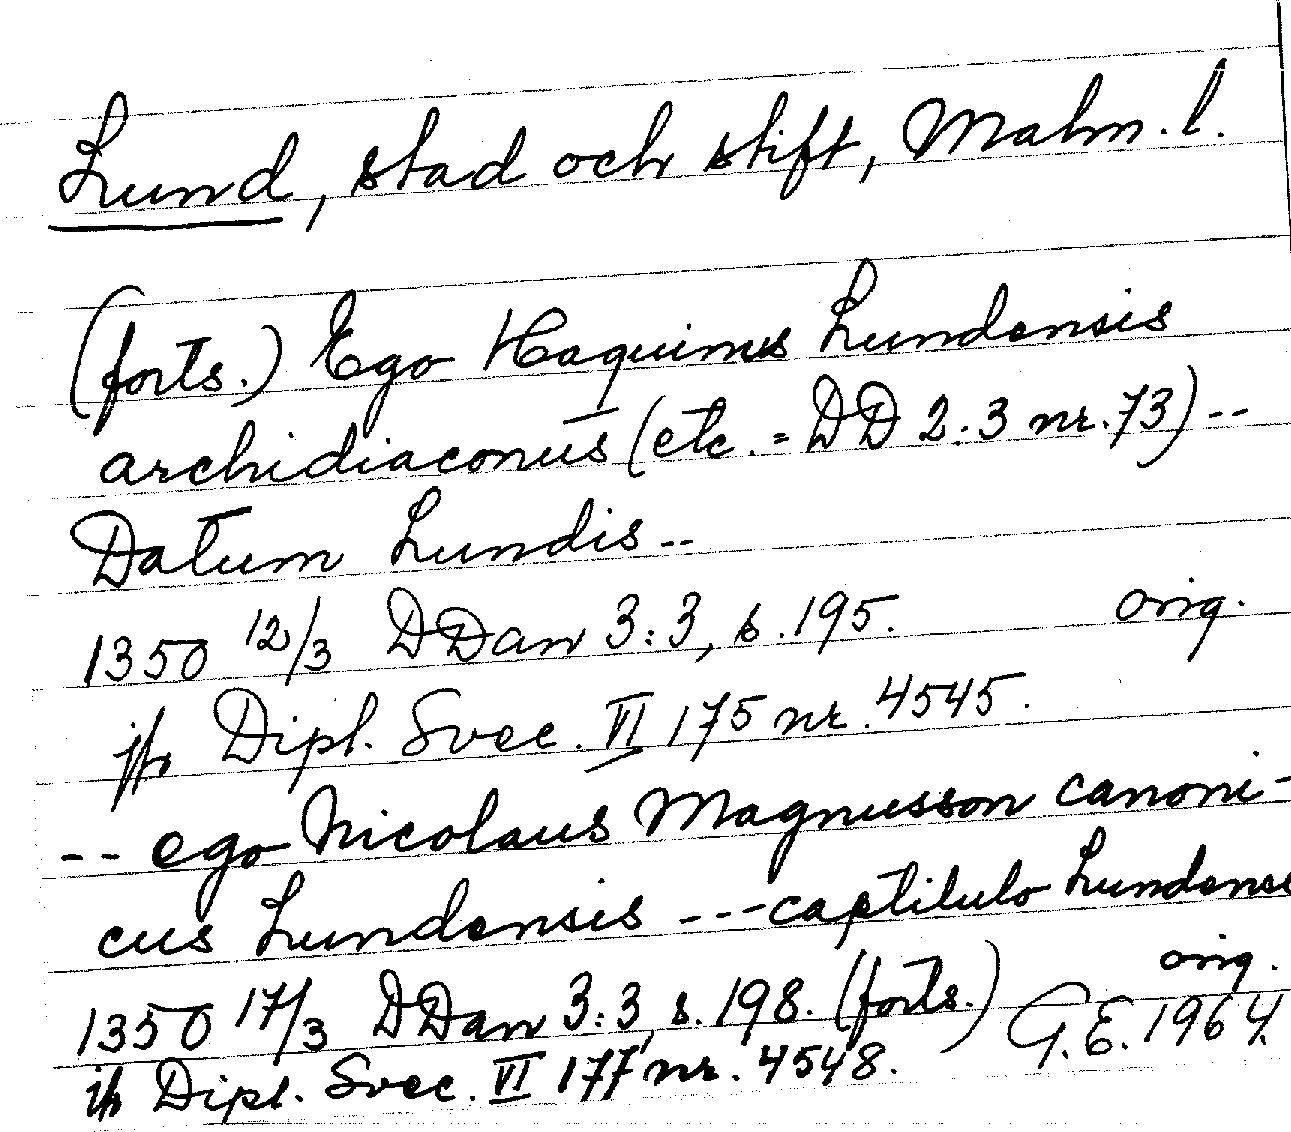 Lund, stad och stift, Malm. l.
(forts.) Ego Haquinus Lundensis
archidiaconus (etc. = DD 2:3 nr. 73) --
Datum Lundis --
1350 12/3 DDan 3:3, s. 195. orig.
jfr Dipl. Svec. VI 175 nr. 4545.
-- ego Nicolaus Magnusson canoni-
cus Lundensis --- captitulo Lundense
1350 17/3 DDan 3:3, s. 198. (forts.) orig.
jfr Dipl. Svec. VI 177 nr. 4548. G.E. 1964.